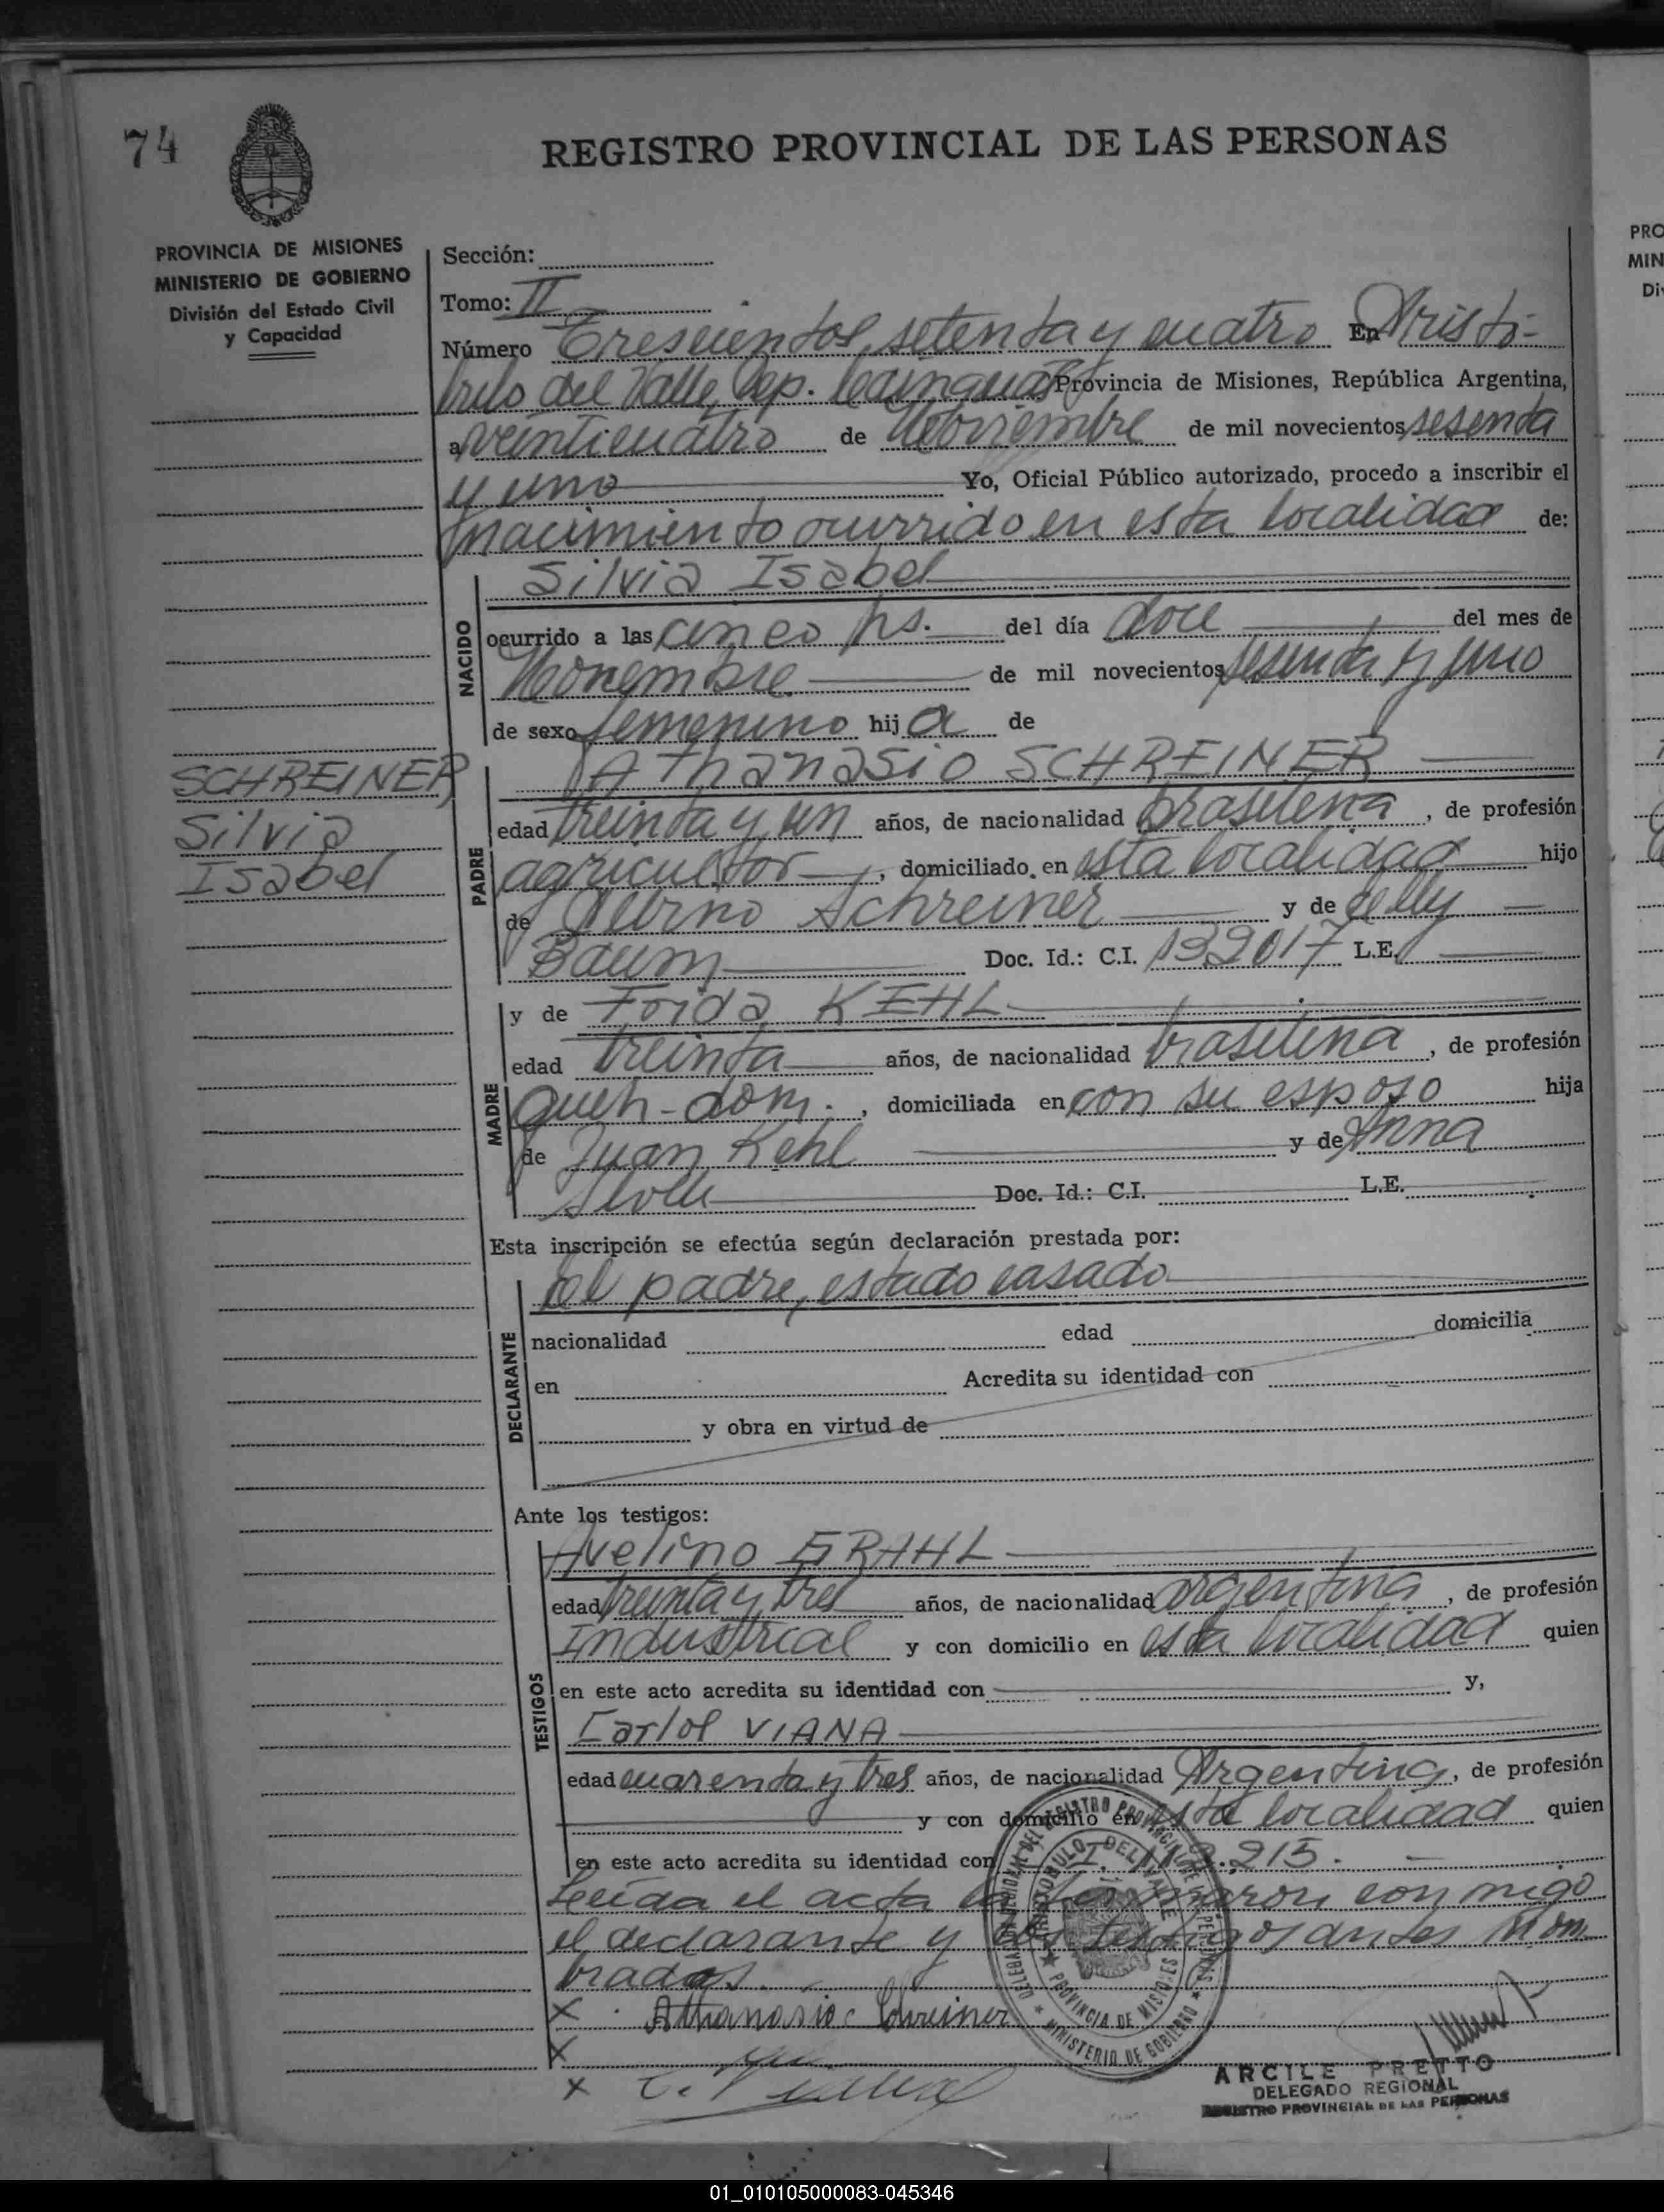 74
REGISTRO PROVINCIAL DE LAS PERSONAS
PROVINCIA DE MISIONES
MINISTERIO DE GOBIERNO
División del Estado Civil
y Capacidad
Sección:
Tomo: II
Número Trescientos setenta y cuatro En Aristó-
bulo del Valle, Dep. Cainguás Provincia de Misiones, República Argentina,
a veinticuatro de Noviembre de mil novecientos sesenta
y uno Yo, Oficial Público autorizado, procedo a inscribir el
nacimiento ocurrido en esta localidad de:
NACIDO
Silvia Isabel
ocurrido a las cinco hs. del día doce del mes de
Noviembre de mil novecientos sesenta y uno
de sexo femenino hija de
SCHREINER,
Silvia
Isabel
PADRE
Athanasio SCHREINER
edad treinta y un años, de nacionalidad brasilena, de profesión
agricultor, domiciliado en esta localidad hijo
de Schreiner y de
Baum Doc. Id.: C.I. 139017 L.E.
MADRE
y de Frida KEHL
edad treinta años, de nacionalidad brasilena, de profesión
queh-dom., domiciliada en con su esposo hija
de Juan Kehl y de Anna
Doc. Id.: C.I. L.E.
Esta inscripción se efectúa según declaración prestada por:
DECLARANTE
El padre, estado casado
nacionalidad edad domicilia
en Acredita su identidad con
y obra en virtud de
Ante los testigos:
TESTIGOS
Avelino GRAHL
edad treinta y tres años, de nacionalidad argentina, de profesión
Industrial y con domicilio en esta localidad quien
en este acto acredita su identidad con y,
Carlos VIANA
edad cuarenta y tres años, de nacionalidad Argentina, de profesión
y con domicilio en esta localidad quien
en este acto acredita su identidad con 215.
Leída el acta la firmaron conmigo
el declarante y los testigos antes nom
brados.
x Athanásio Schreiner
x
x C. Viana
DELEGACION REGIONAL DEL REGISTRO PROVINCIAL DE LAS PERSONAS
ARISTOBULO DEL VALLE
PROVINCIA DE MISIONES
MINISTERIO DE GOBIERNO
ARCILE PRETTO
DELEGADO REGIONAL
REGISTRO PROVINCIAL DE LAS PERSONAS
01_010105000083-045346
PRO
MIN
Di